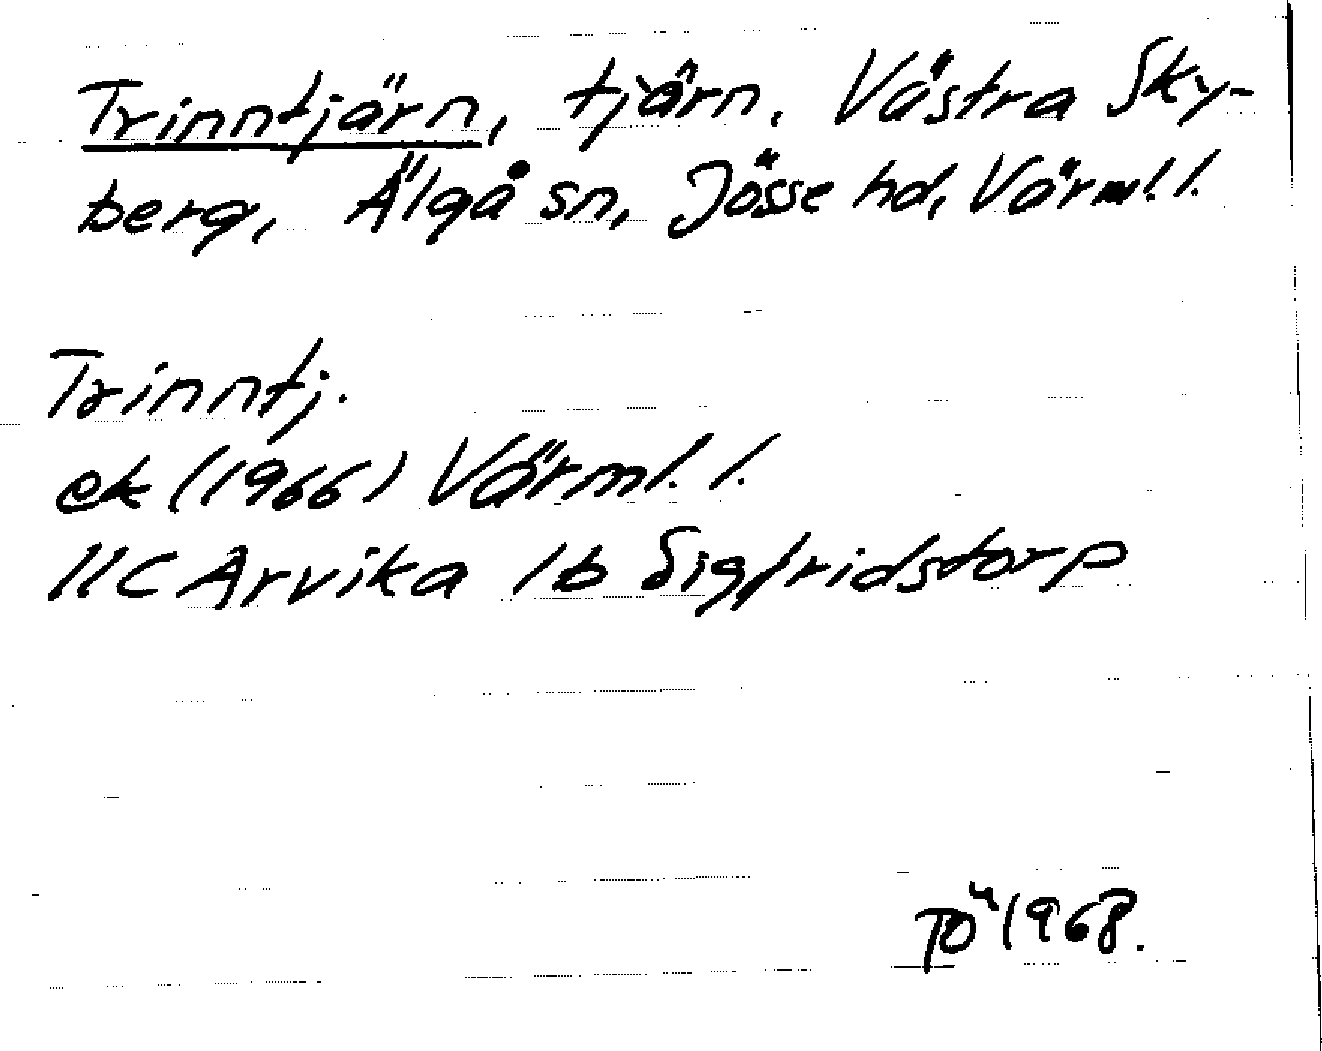 Trinntjärn, tjärn, Västra Sky-
berg, Älgå sn, Jösse hd, Värml. l.
Trinntj.
ek (1966) Värml. l.
11C Arvika 1b Sigfridstorp
TÖ 1968.